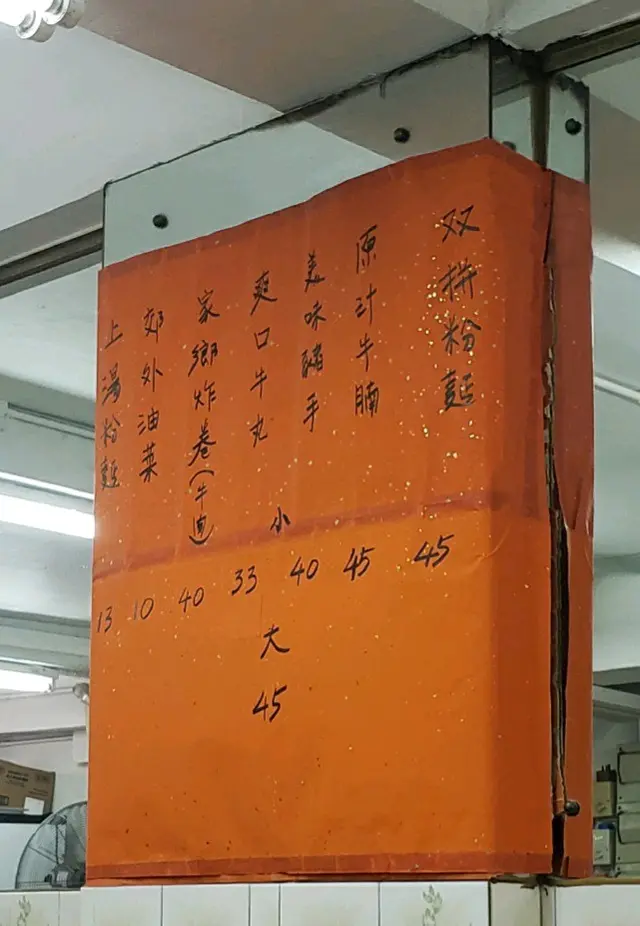 双拼粉麵 45
原汁牛腩 45
美味豬手 40
爽口牛丸 小 33 大 45
家鄉炸卷(牛迪) 40
郊外油菜 10
上湯粉麵 13